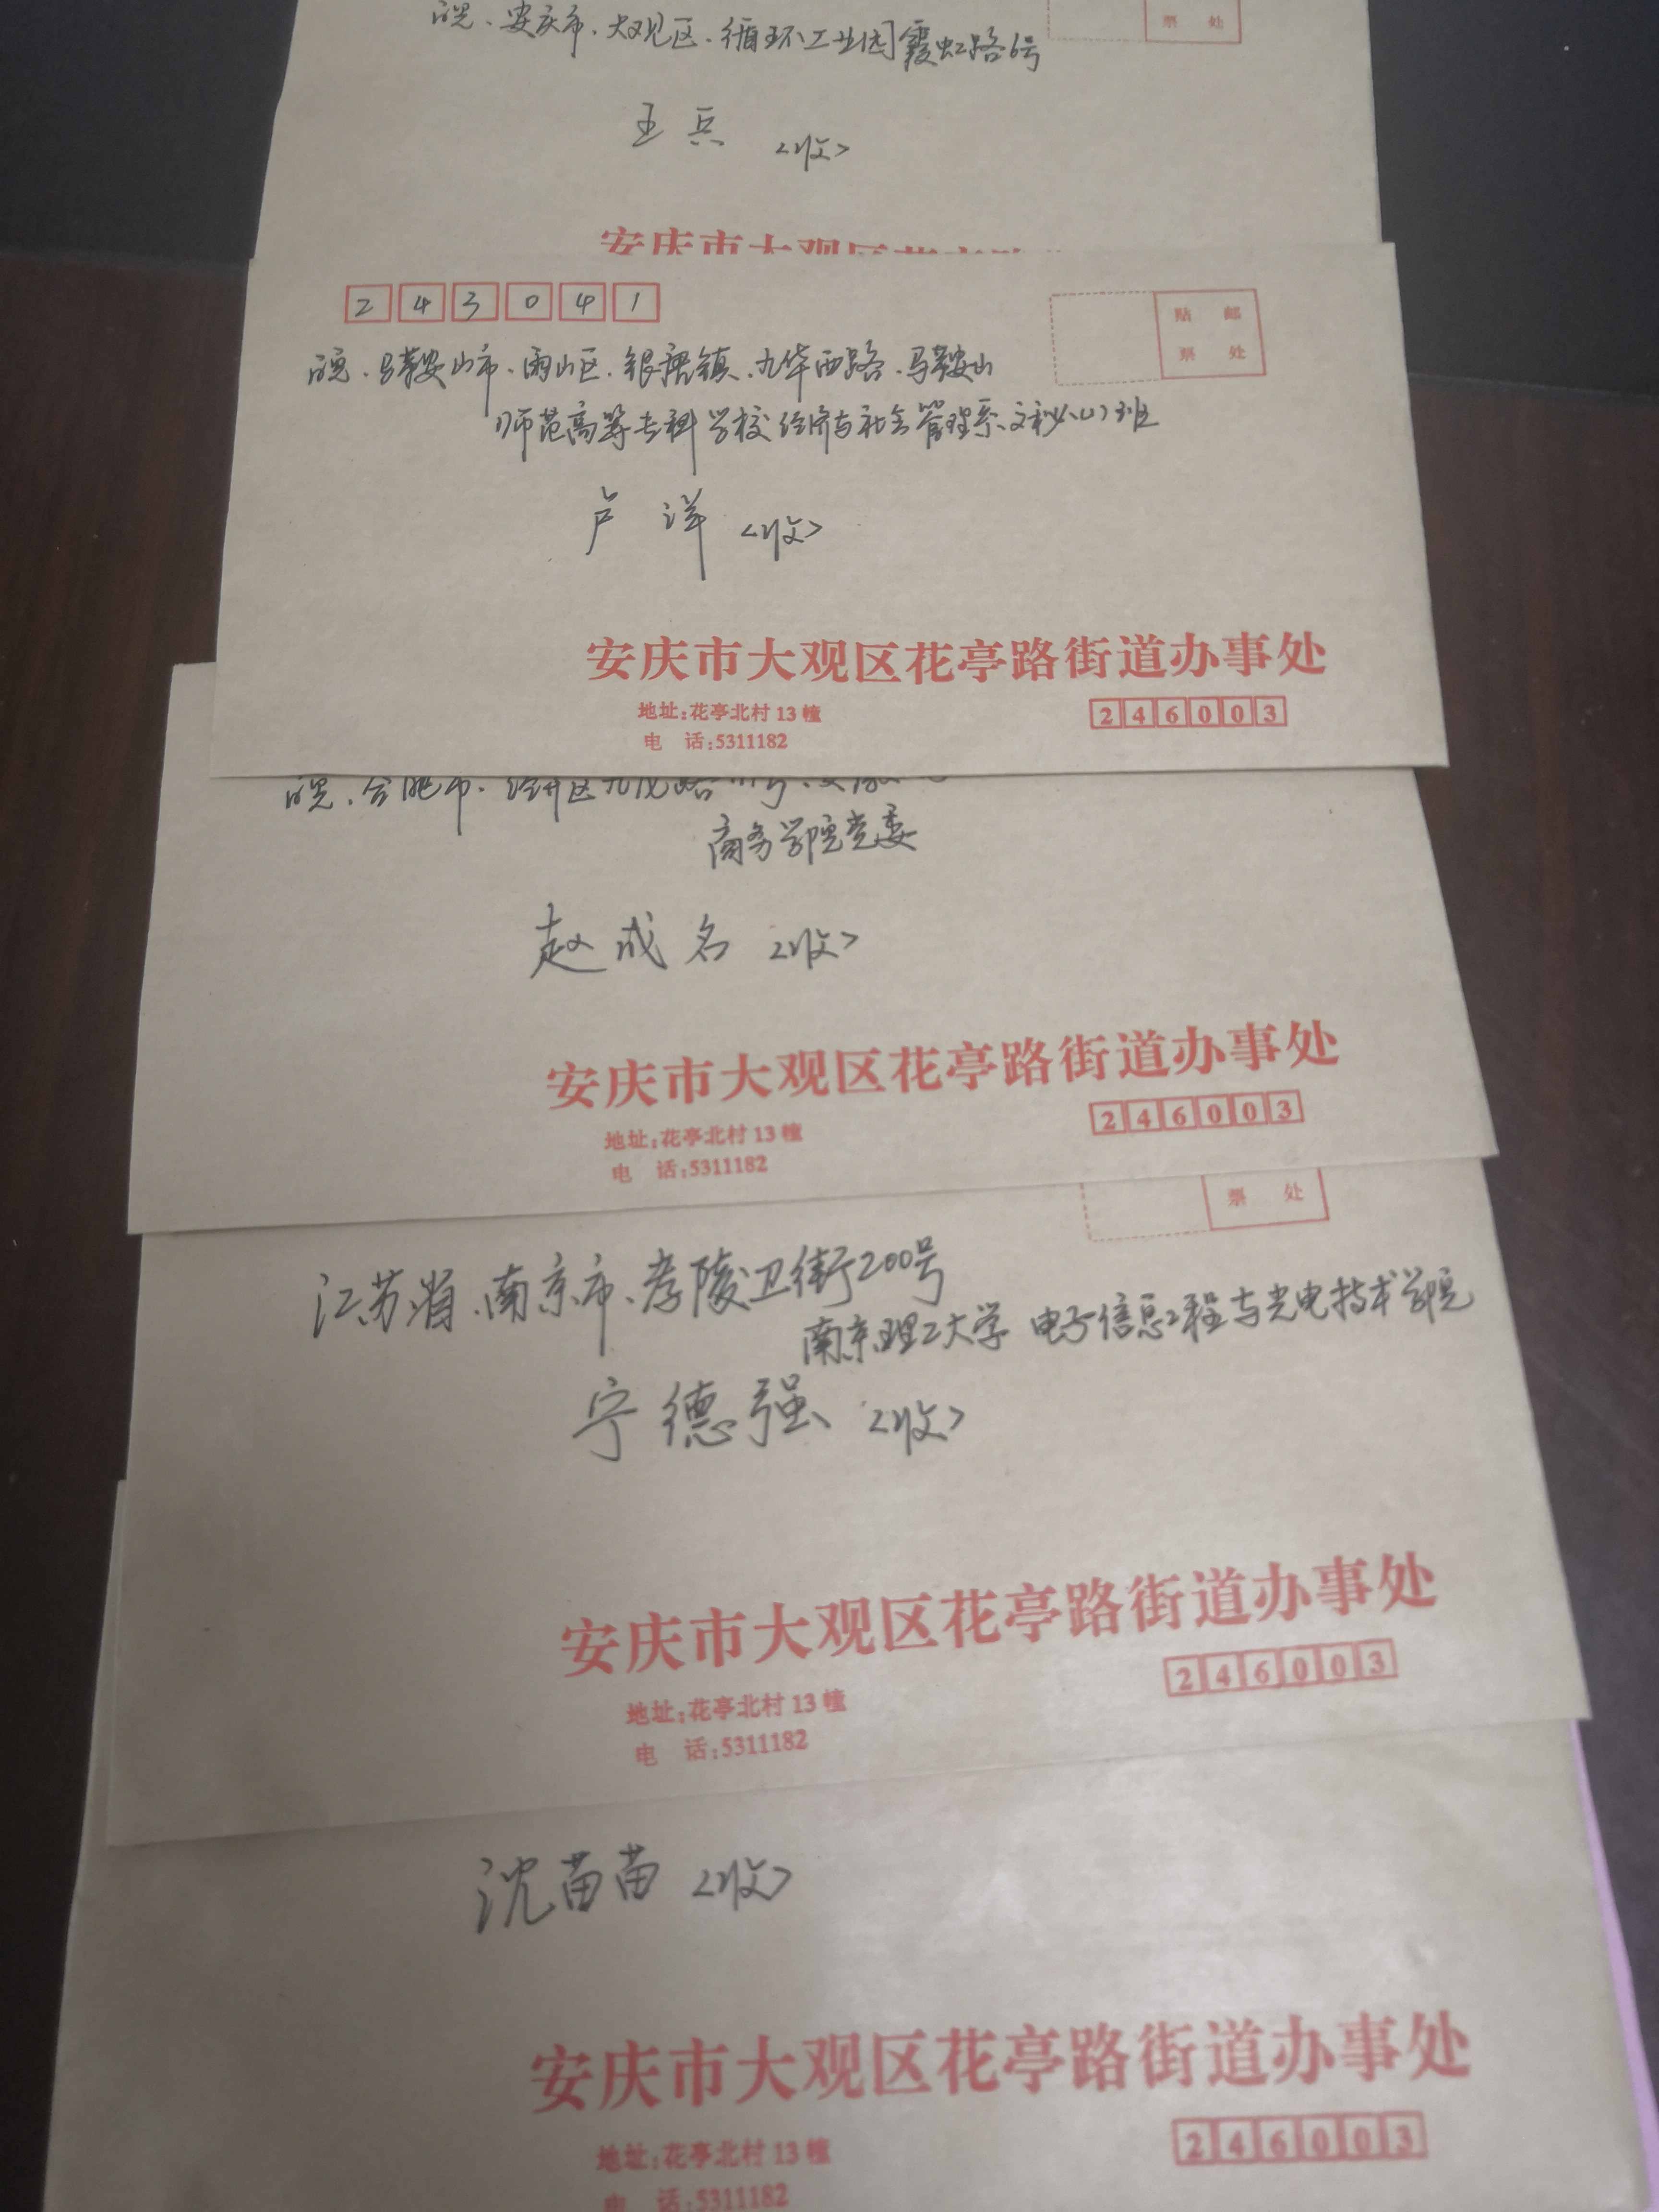 皖、安庆市、大观区、循环工业园霞虹路6号
票 处
王兵 <收>
安庆市大观区花亭路
243041
贴 邮
票 处
皖、马鞍山市、雨山区、银塘镇、九华西路、马鞍山
师范高等专科学校经济与社会管理系、文秘(1)班
卢洋 <收>
安庆市大观区花亭路街道办事处
地址:花亭北村13幢
246003
电 话:5311182
皖、合肥市、经开区九龙路111号、安徽
商务学院党委
赵成名 <收>
安庆市大观区花亭路街道办事处
地址:花亭北村13幢
246003
电 话:5311182
票 处
江苏省、南京市、孝陵卫街200号
南京理工大学 电子信息工程与光电技术学院
宁德强 <收>
安庆市大观区花亭路街道办事处
地址:花亭北村13幢
246003
电 话:5311182
沈苗苗 <收>
安庆市大观区花亭路街道办事处
地址:花亭北村13幢
246003
电 话:5311182